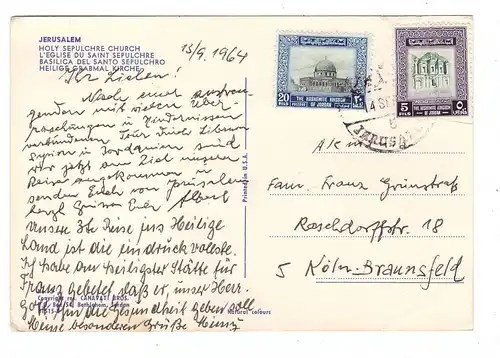 JERUSALEM
HOLY SEPULCHRE CHURCH
L'EGLISE DU SAINT SEPULCHRE
BASILICA DEL SANTO SEPULCHRO
HEILIGE GRABMAL KIRCHE
15/9. 1964
Ihr Lieben!
Nach einer anstren-
genden mit vielen Über-
raschungen u. Hindernissen
verbundenen Tour durch Libanon
Syrien u. Jordanien sind
wir jetzt am Ziel unserer
Reise angekommen u.
senden Euch von Jerusalem
herzl. Grüsse Euer Albert
Unsere 3te Reise ins Heilige
Land ist die eindruckvollste.
Ich habe an heiligster Stätte für
Franz gebetet daß er, unser Herr-
Gott ihm die Gesundheit geben soll
Meine besonderen Grüße Heinz
Copyright by CANAVATI BROS.
Bethlehem, Jordan
Natural colours
Printed in U.S.A.
20
FILS
POSTAGE
٢٠
THE HASHEMITE KINGDOM
OF JORDAN
5
FILS
٥
THE HASHEMITE KINGDOM
OF JORDAN
JERUSALEM
Fam. Franz Grünstraß
Raschdorffstr. 18
5 Köln-Braunsfeld